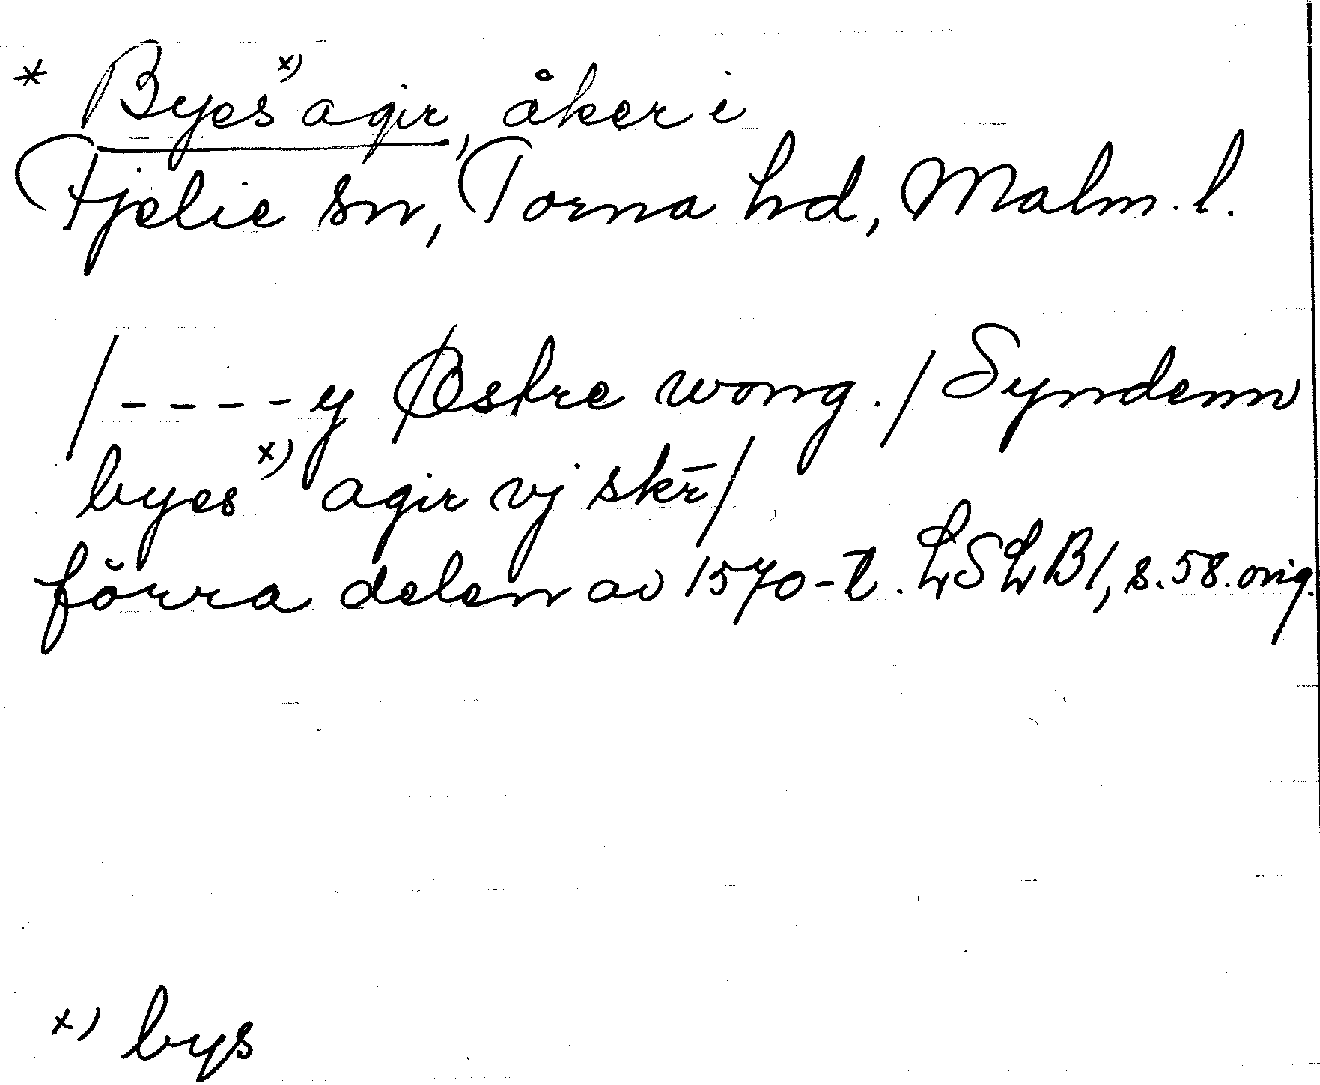 * Byes x) agir, åker i
Fjelie sn, Torna hd, Malm. l.
/----y Østre wong./Syndenn
byes x) agir vj skr̄/
förra delen av 1570-t. LSLB1, s.58.orig.
x) bys